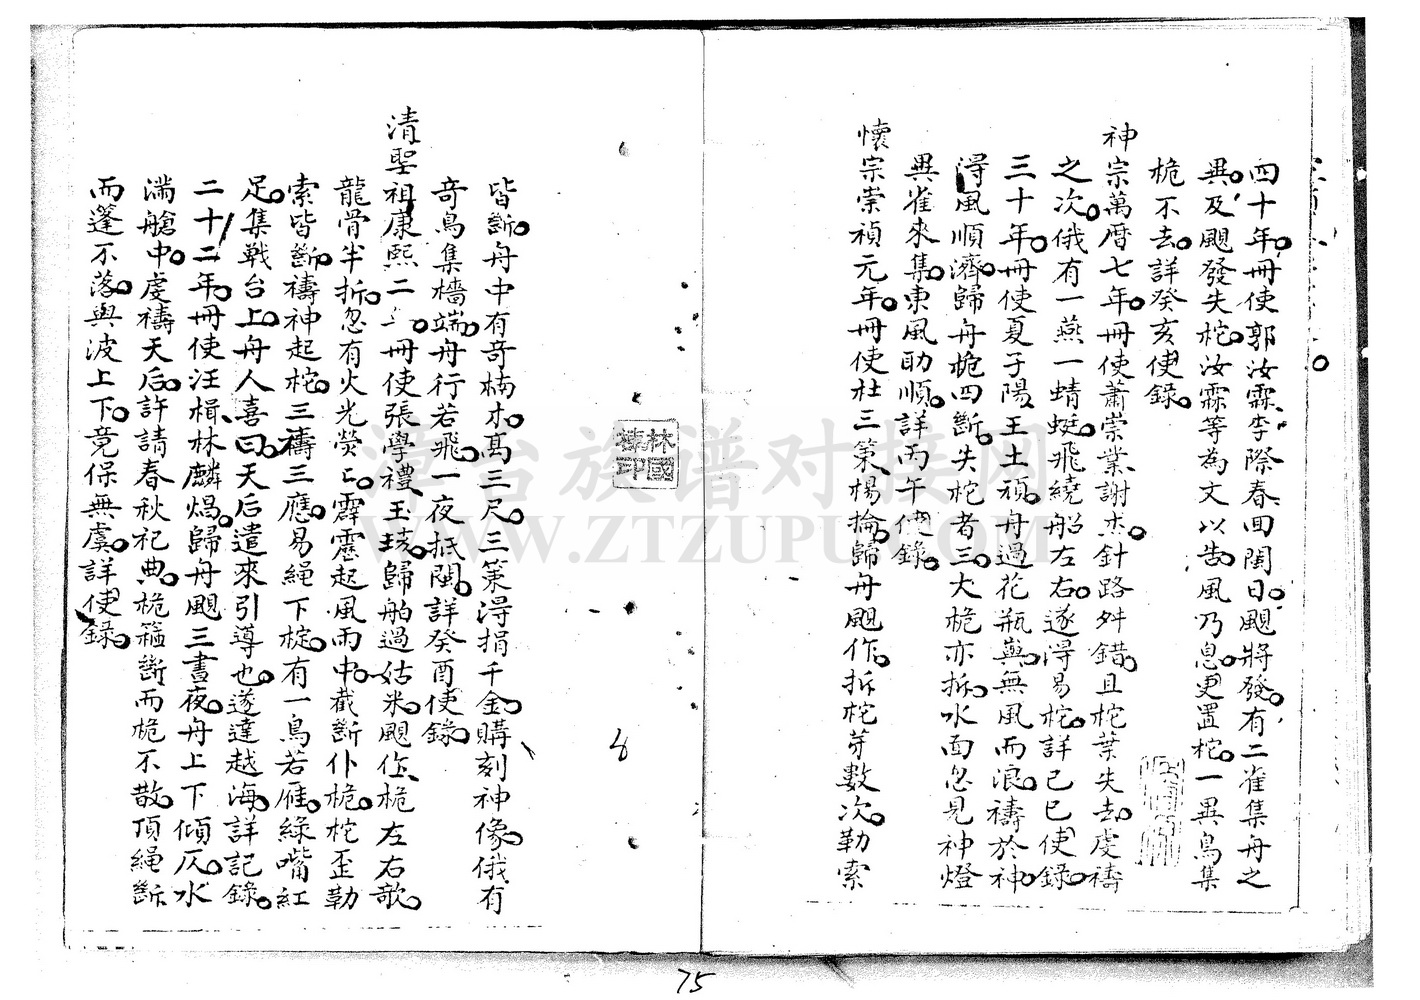 四十年。冊使郭汝霖、李際春回閩日。颶將發。有二雀集舟之
異。及颶發失柁。汝霖等為文以告。風乃息。更置柁。一異鳥集
桅不去。詳癸亥使錄。
神宗萬曆七年。冊使蕭崇業謝杰。針路舛錯。且柁葉失去。虔禱
之次。俄有一燕一蜻蜓。飛繞船左右。遂得易柁。詳己巳使錄。
三十年。冊使夏子陽、王士禎。舟過花瓶嶼。無風而浪。禱於神。
得風順濟。歸舟桅四斷。失柁者三。大桅亦拆。水面忽見神燈
異雀來集。東風助順。詳丙午使錄。
懷宗崇禎元年。冊使杜三策、楊掄。歸舟颶作。拆柁芽數次。勒索
皆斷。舟中有奇楠木。高三尺。三策得捐千金。購刻神像。俄有
奇鳥集檣端。舟行若飛。一夜抵閩。詳癸酉使錄。
清聖祖康熙二年。冊使張學禮、王垓。歸舶過姑米。颶作、桅左右欹。
龍骨半折。忽有火光熒々。霹靂起風雨中。截斷仆桅。柁歪勒
索皆斷。禱神起柁。三禱三應。易繩下椗。有一鳥若雁。綠嘴紅
足。集戰台上。舟人喜曰。天后遣來引導也。遂達越海。詳記錄。
二十二年。冊使汪楫、林麟焻。歸舟颶三晝夜。舟上下傾仄。水
滿艙中。虔禱天后。許請春秋祀典。桅箍斷而桅不散。頂繩斷
而蓬不落。與波上下。竟保無虞。詳使錄。
林國
梼印
8
75
漳台族谱对接网
WWW.ZTZUPU.COM